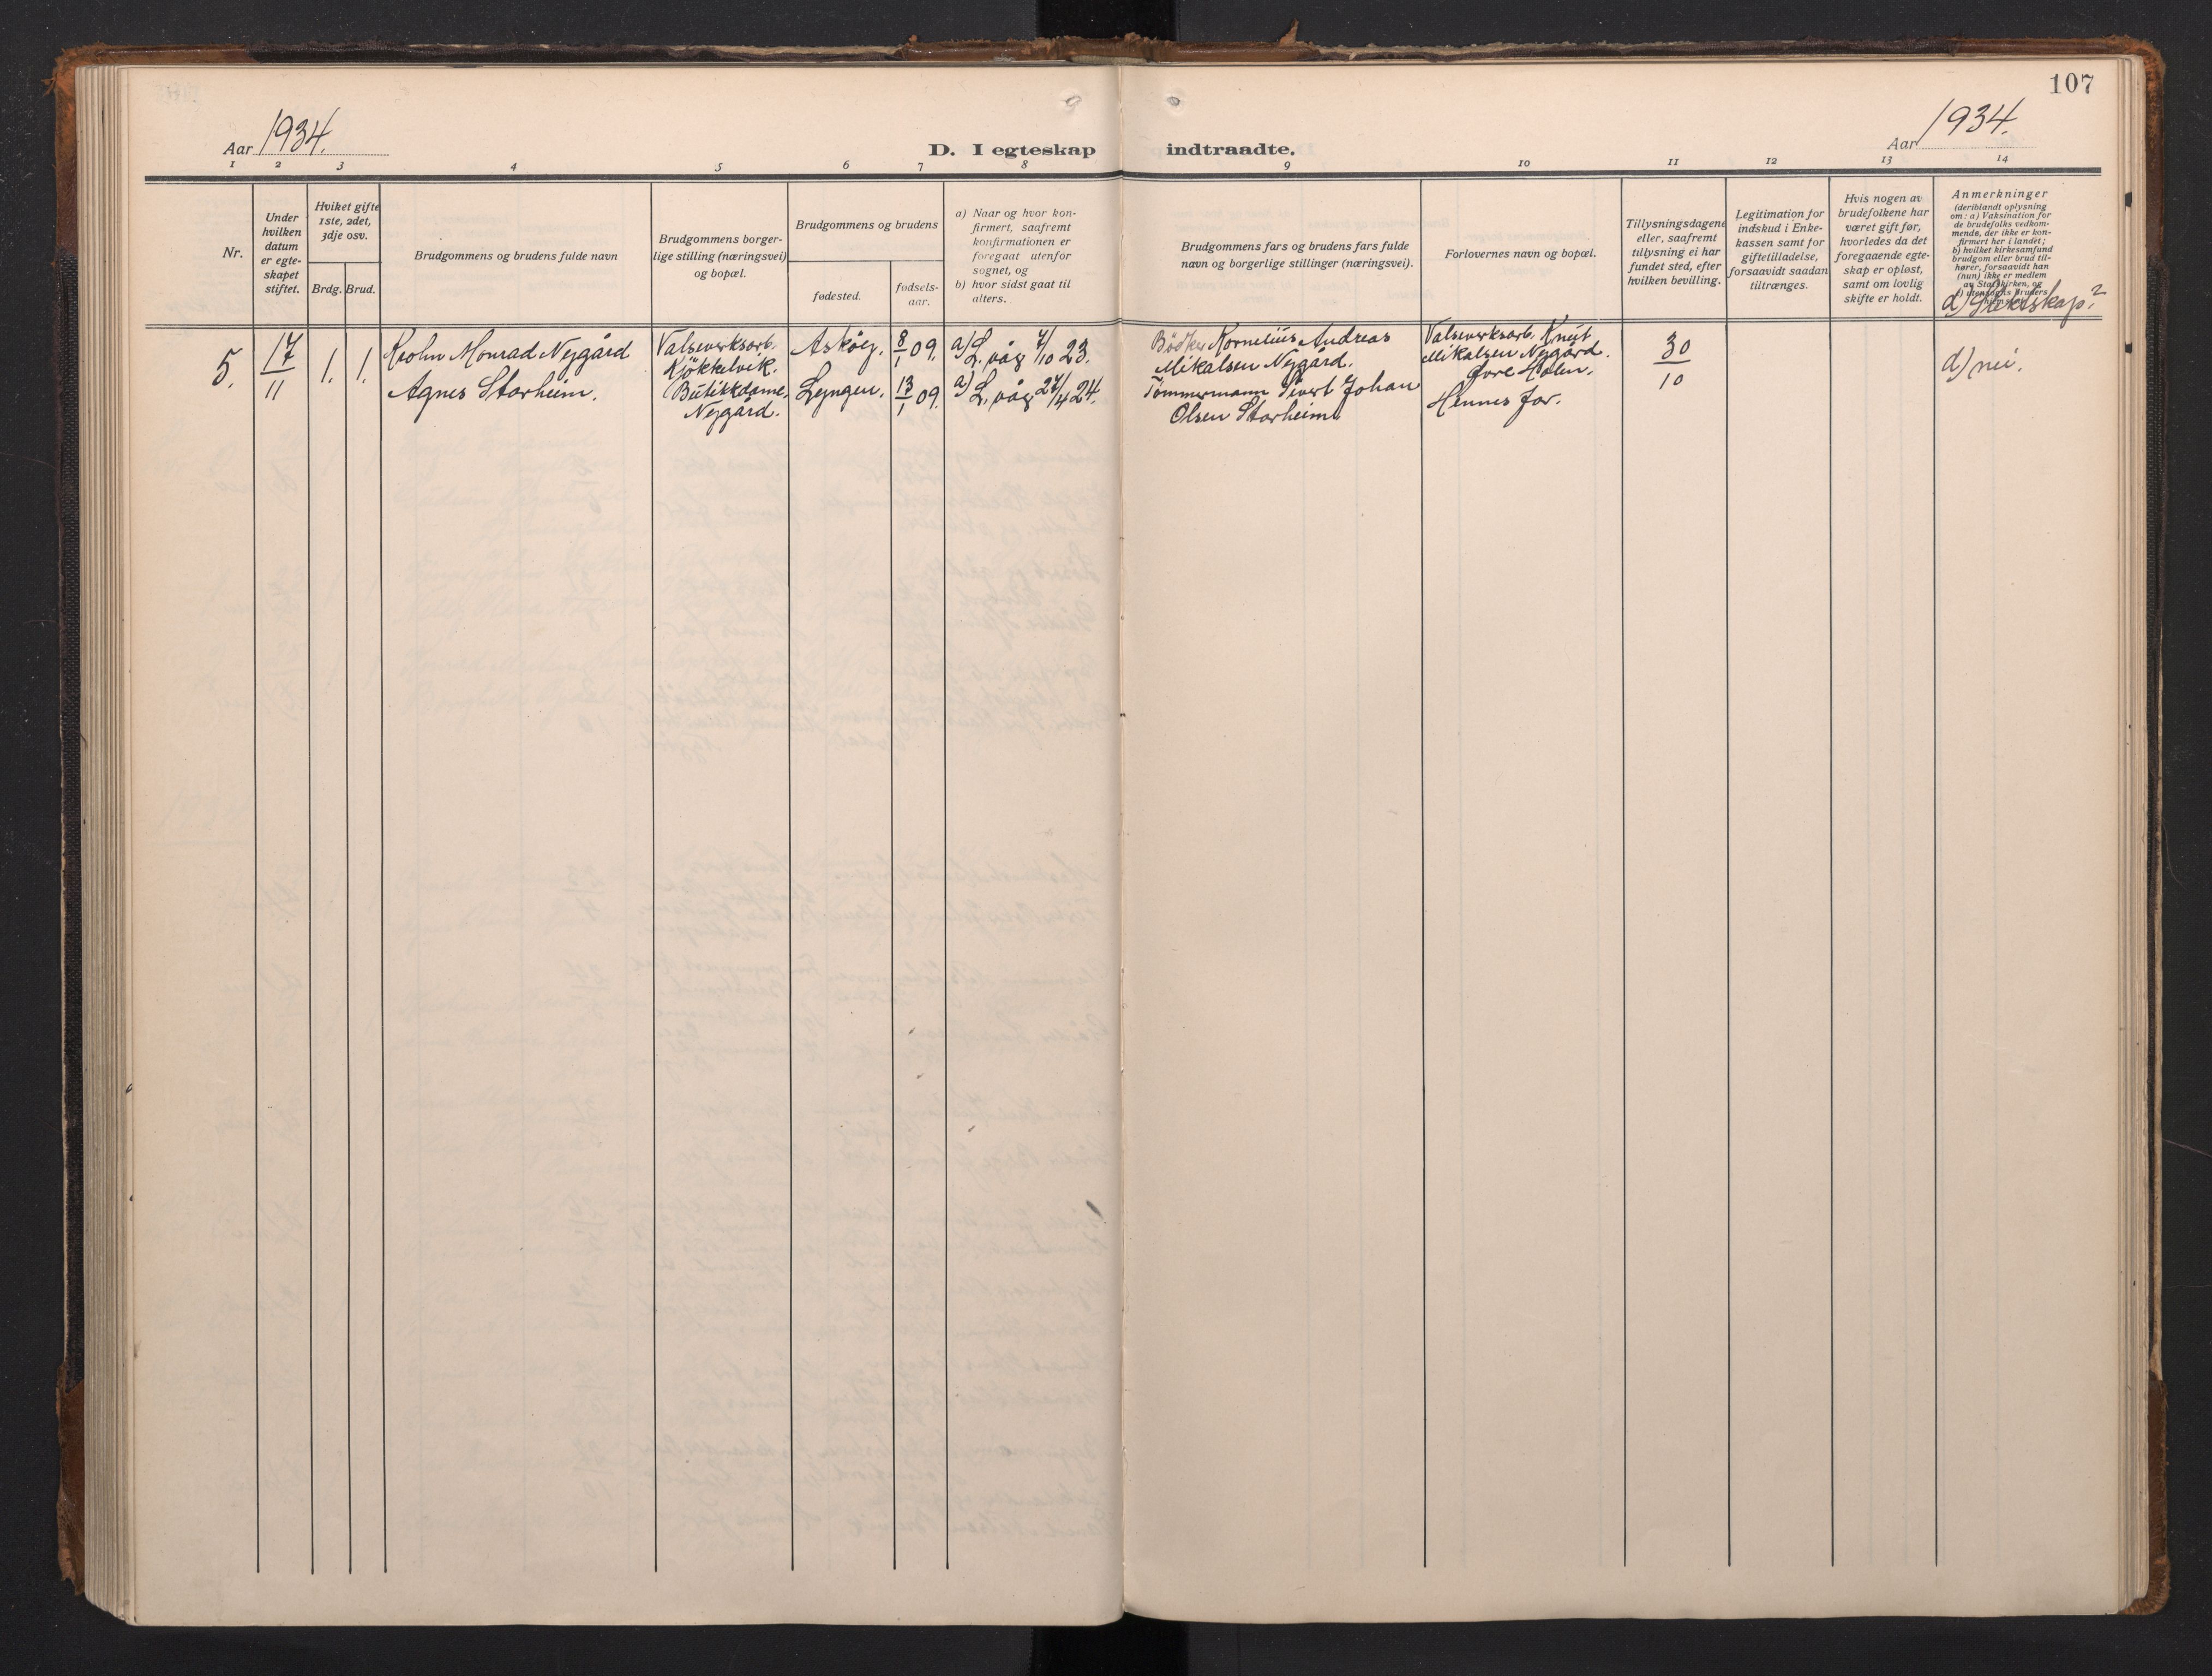 107
Aar 1934.
D. I egteskap indtraadte.
Aar 1934.
1 2 3 4 5 6 7 8 9 10 11 12 13 14
Nr.
Under
hvilken
datum
er egte-
skapet
stiftet.
Hviket gifte
1ste, 2det,
3dje osv.
Brdg. Brud.
Brudgommens og brudens fulde navn
Brudgommens borger-
lige stilling (næringsvei)
og bopæl.
Brudgommens og brudens
fødested.
fødsels-
aar.
a) Naar og hvor kon-
firmert, saafremt
konfirmationen er
foregaat utenfor
sognet, og
b) hvor sidst gaat til
alters.
Brudgommens fars og brudens fars fulde
navn og borgerlige stillinger (næringsvei).
Forlovernes navn og bopæl.
Tillysningsdagene
eller, saafremt
tillysning ei har
fundet sted, efter
hvilken bevilling.
Legitimation for
indskud i Enke-
kassen samt for
giftetilladelse,
forsaavidt saadan
tiltrænges.
Hvis nogen av
brudefolkene har
været gift før,
hvorledes da det
foregaaende egte-
skap er opløst,
samt om lovlig
skifte er holdt.
Anmerkninger
(deriblandt oplysning
om: a) Vaksination for
de brudefolks vedkom-
mende, der ikke er kon-
firmert her i landet;
b) hvilket kirkesamfund
brudgom eller brud til-
hører, forsaavidt han
(hun) ikke er medlem
av Statskirken, og
d) Slektskap?
5.
17
11
1. 1.
Krohn Monrad Nygård
Agnes Storheim.
Valseverksarb.
Kjøkkelvik.
Butikkdame,
Nygård.
Askøy.
Lyngen.
8/1 09.
13/1 09.
a) L. våg 7/10 23.
a) L. våg 27/4 24.
Bødker Kornelius Andreas
Mikalsen Nygård.
Tømmermann Sivert Johan
Olsen Storheim
Valseverksarb. Knut
Mikalsen Nygård.
Øvre Holen.
Hennes far.
30
10
d) nei.